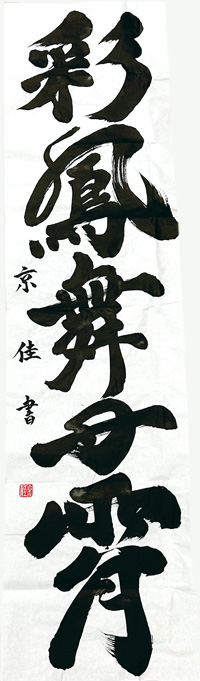 彩鳳舞丹霄
京佳書